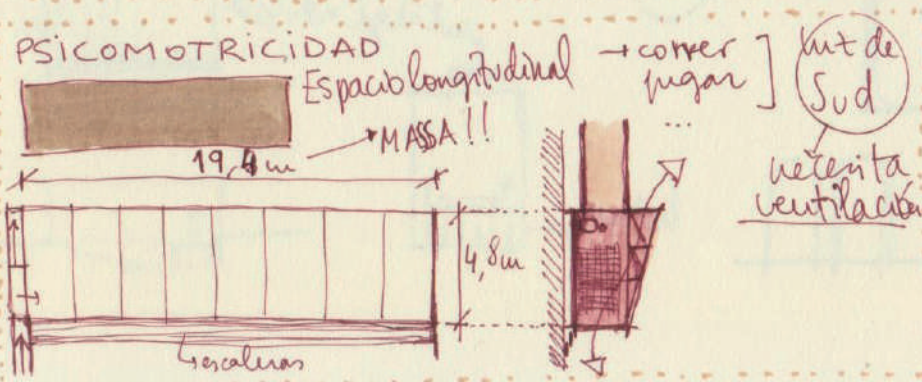 PSICOMOTRICIDAD
Espacio longitudinal
→ correr
jugar
...
llut de
Sud
necesita
ventilación
→ MASSA!!
19,4 m
4,8m
↳ escaleras